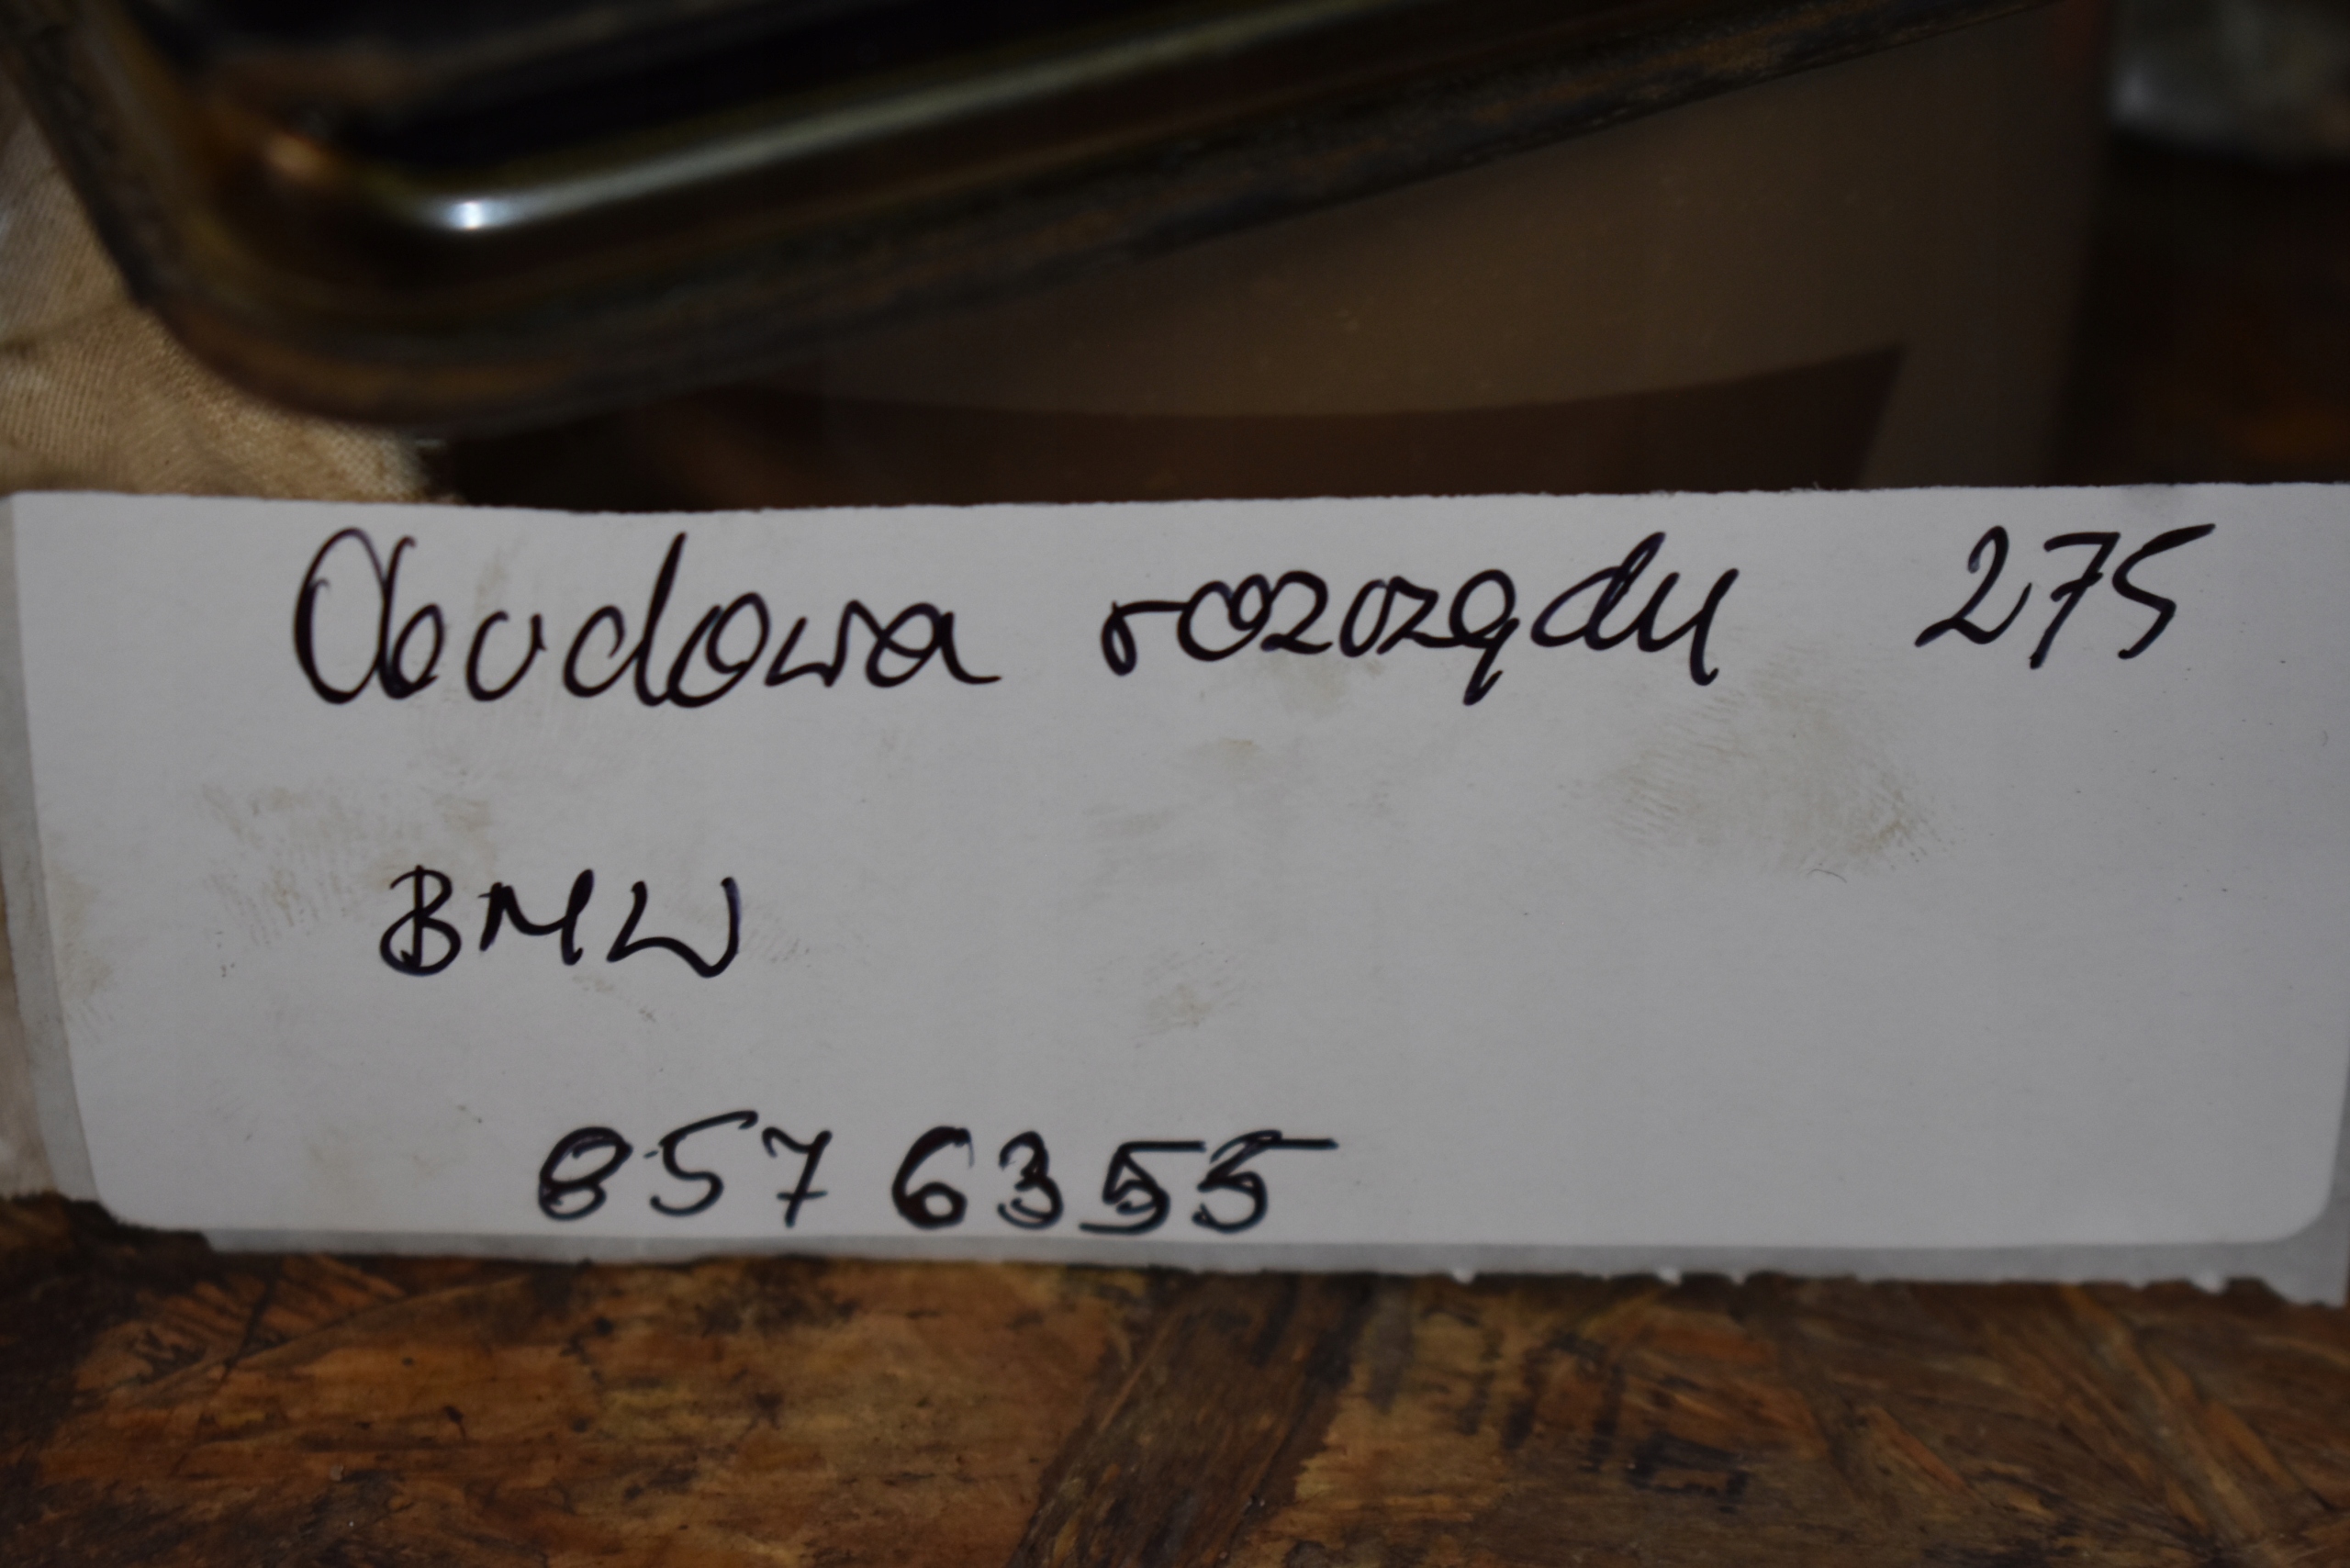 Obudowa rozrządu 275
BMW
8576355